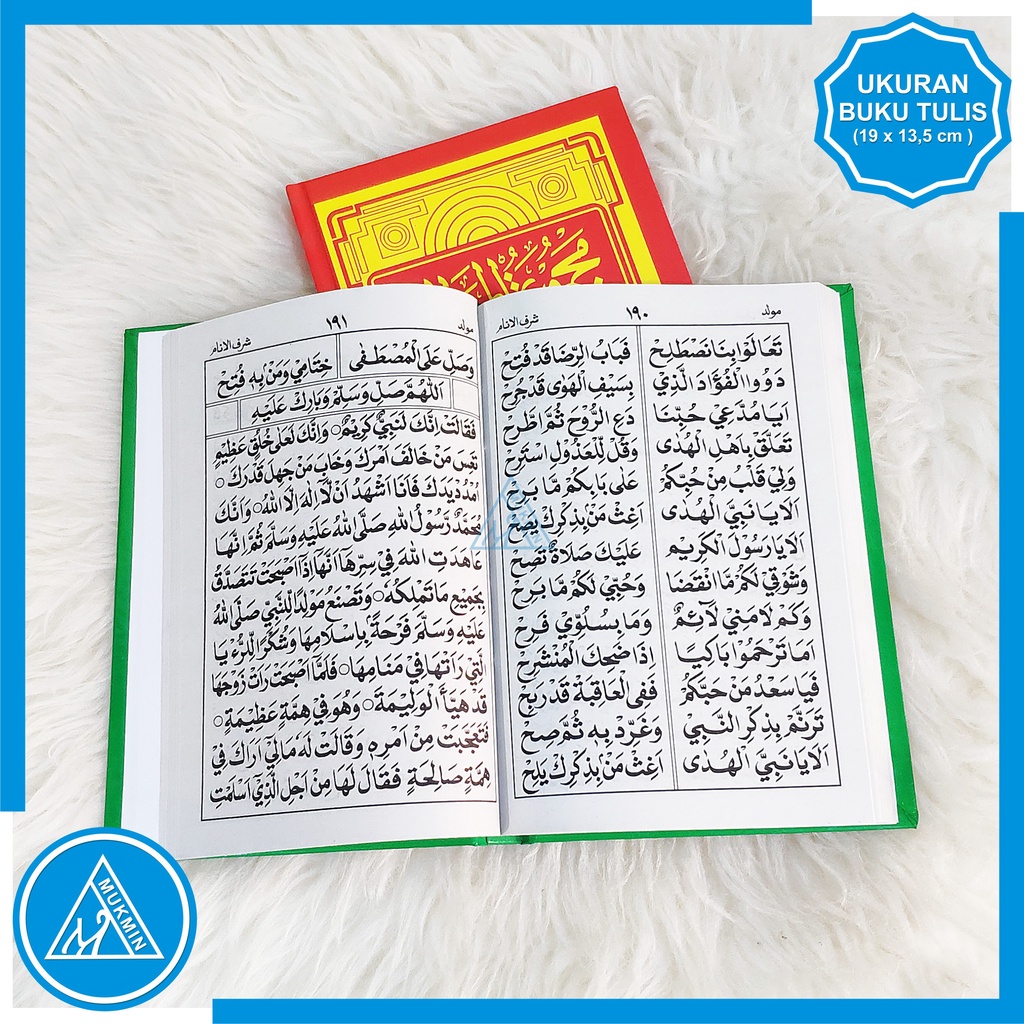 UKURAN
BUKU TULIS
(19 x 13,5 cm )
مولد
١٩٠
شرف الانام
تَعَالَوْا بِنَا نَصْطَلِحْ فَبَابُ الرِّضَا قَدْ فُتِحْ
دَوُوا الْفُؤَادَ الَّذِي بِسَيْفِ الْهَوٰى قَدْ جُرِحْ
اَيَا مُدَّعِيْ حُبِّنَا دَعِ الرُّوْحَ ثُمَّ اطَّرِحْ
تَعَلَّقْ بِاَهْلِ الْهُدٰى وَقُلْ لِلْعَذُوْلِ اسْتَرِحْ
وَلِيْ قَلْبٌ مِنْ حُبِّكُمْ عَلٰى بَابِكُمْ مَا بَرِحْ
اَلَا يَا نَبِيَّ الْهُدٰى اَغِثْ مَنْ بِذِكْرِكَ يَصِحْ
اَلَا يَا رَسُوْلَ الْكَرِيْمِ عَلَيْكَ صَلَاةٌ تَصِحْ
وَشَوْقِيْ لَكُمْ مَا انْقَضَا وَحُبِّيْ لَكُمْ مَا بَرِحْ
وَكَمْ لَامَنِيْ لَآئِمٌ وَمَا بِسُلُوِّيْ فَرِحْ
اَمَا تَرْحَمُوْا بَاكِيًا اِذَا ضَحِكَ الْمُنْشَرِحْ
فَيَا سَعْدُ مَنْ حَبَّكُمْ فَفِى الْعَاقِبَةِ قَدْ رَبِحْ
تَرَنَّمْ بِذِكْرِ النَّبِيِّ وَغَرِّدْ بِهِ ثُمَّ صِحْ
اَلَا يَا نَبِيَّ الْهُدٰى اَغِثْ مَنْ بِذِكْرِكَ يَلِحْ
مولد
١٩١
شرف الانام
وَصَلِّ عَلَى الْمُصْطَفٰى خِتَامِيْ وَمَنْ بِهِ فُتِحْ
اَللّٰهُمَّ صَلِّ وَسَلِّمْ وَبَارِكْ عَلَيْهِ
فَقَالَتْ اِنَّكَ لَنَبِيٌّ كَرِيْمٌ ۞ وَاِنَّكَ لَعَلٰى خُلُقٍ عَظِيْمٍ
تَعِسَ مَنْ خَالَفَ اَمْرَكَ وَخَابَ مَنْ جَهِلَ قَدْرَكَ ۞
اُمْدُدْ يَدَكَ فَاَنَا اَشْهَدُ اَنْ لَّا اِلٰهَ اِلَّا اللهُ ۞ وَاَنَّكَ
مُحَمَّدٌ رَّسُوْلُ اللهِ صَلَّى اللهُ عَلَيْهِ وَسَلَّمَ ثُمَّ اِنَّهَا
عَاهَدَتِ اللهَ فِيْ سِرِّهَا اَنَّهَا اِذَا اَصْبَحَتْ تَتَصَدَّقُ
بِجَمِيْعِ مَا تَمْلِكُهُ ۞ وَتَصْنَعُ مَوْلِدًا لِلنَّبِيِّ صَلَّى اللهُ
عَلَيْهِ وَسَلَّمَ فَرْحَةً بِاِسْلَامِهَا وَشُكْرًا لِلرُّءْيَا
الَّتِيْ رَاَتْهَا فِيْ مَنَامِهَا ۞ فَلَمَّا اَصْبَحَتْ رَاَتْ زَوْجَهَا
قَدْ هَيَّأَ الْوَلِيْمَةَ ۞ وَهُوَ فِيْ هِمَّةٍ عَظِيْمَةٍ ۞
فَتَعَجَّبَتْ مِنْ اَمْرِهِ وَقَالَتْ لَهُ مَالِيْ اَرَاكَ فِيْ
هِمَّةٍ صَالِحَةٍ فَقَالَ لَهَا مِنْ اَجْلِ الَّذِيْ اَسْلَمْتِ
MUKMIN